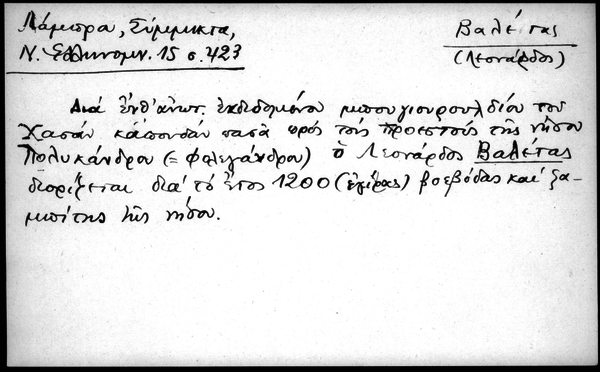 Λάμπρου, Σύμμικτα,
Ν. Ελληνομν. 15 σ. 423
Βαλέτας
(Λεονάρδος)
Διά ἐνθ' ἀνωτ. ἐκδιδομένου μπουγιουρουλδίου του
Χασάν καπουδάν πασᾶ πρός τούς προεστούς τῆς νήσου
Πολυκάνδρου (= Φολεγάνδρου) ὁ Λεονάρδος Βαλέτας
διορίζεται διά τό ἔτος 1200 (ἐγίρας) βοεβόδας καί ζα-
μπίτης τῆς νήσου.